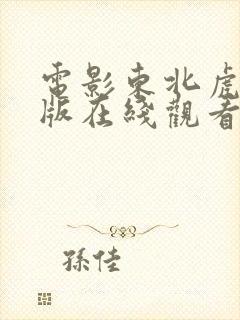 電影東北虎
版在綫觀看
孫佳